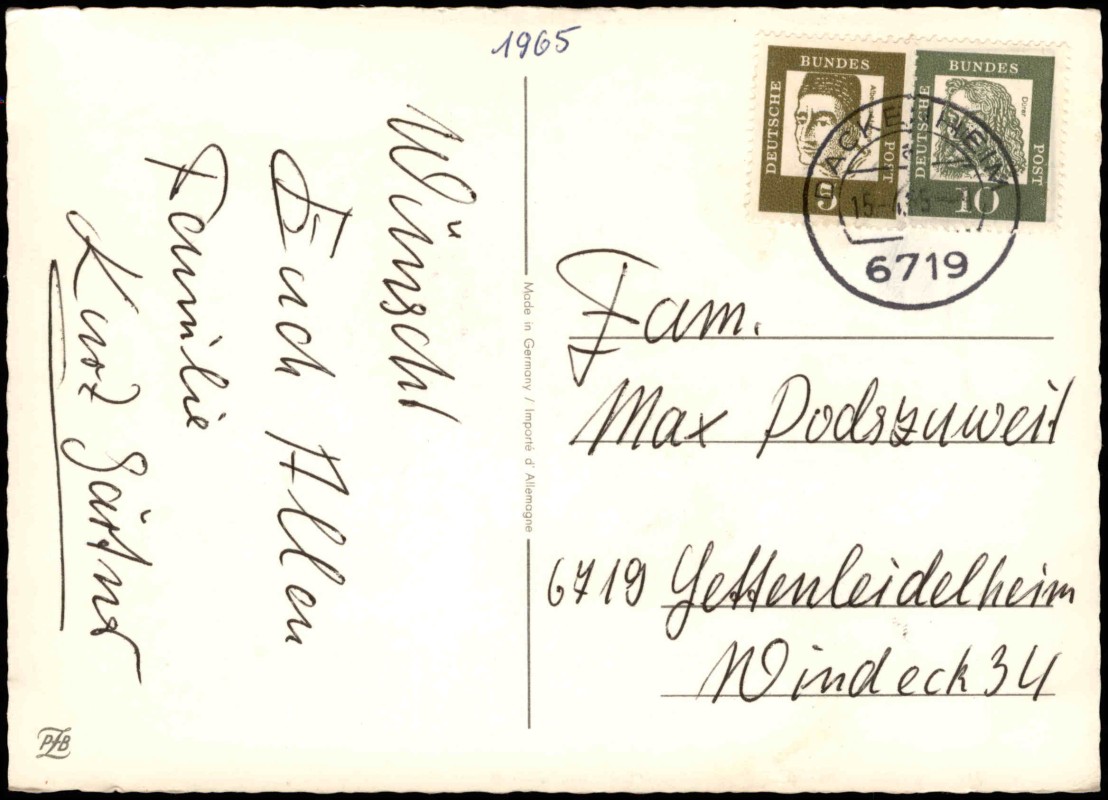 1965
Wünscht
Euch Allen
Familie
Kurz Gärtner
Made in Germany / Importé d'Allemagne
PZB
DEUTSCHE BUNDES POST
5
DEUTSCHE BUNDES POST
Dürer
10
ACKENHEIM
6719
Fam.
Max Podszuweit
6719 Hettenleidelheim
Windeck 34